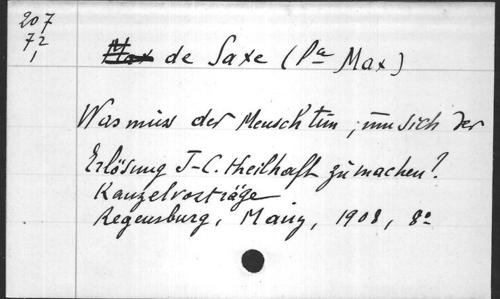 207
72
1
Max de Saxe (Pce Max)
Was muss der Mensch tun, um sich der
Erlösung J-C. theilhaft zu machen?
Kanzelvorträge
Regensburg, Mainz, 1908, 8º